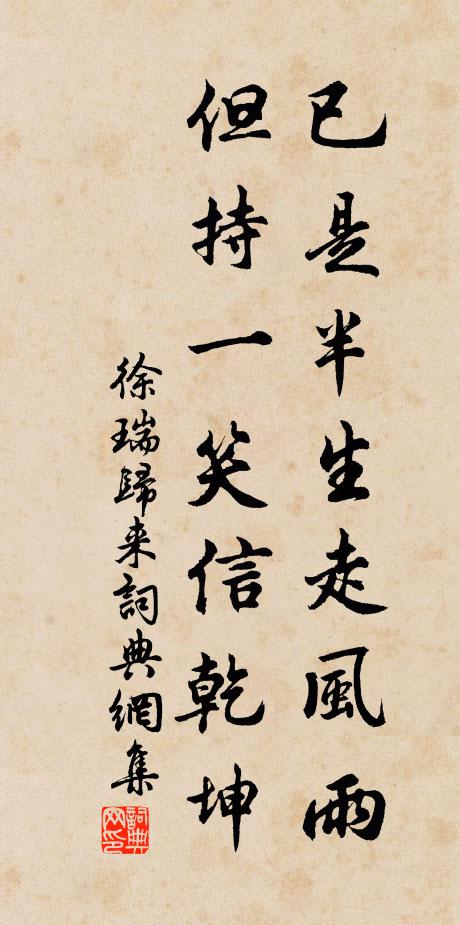 已是半生走風雨
但持一笑信乾坤
徐瑞歸来詞典網集
詞典网印